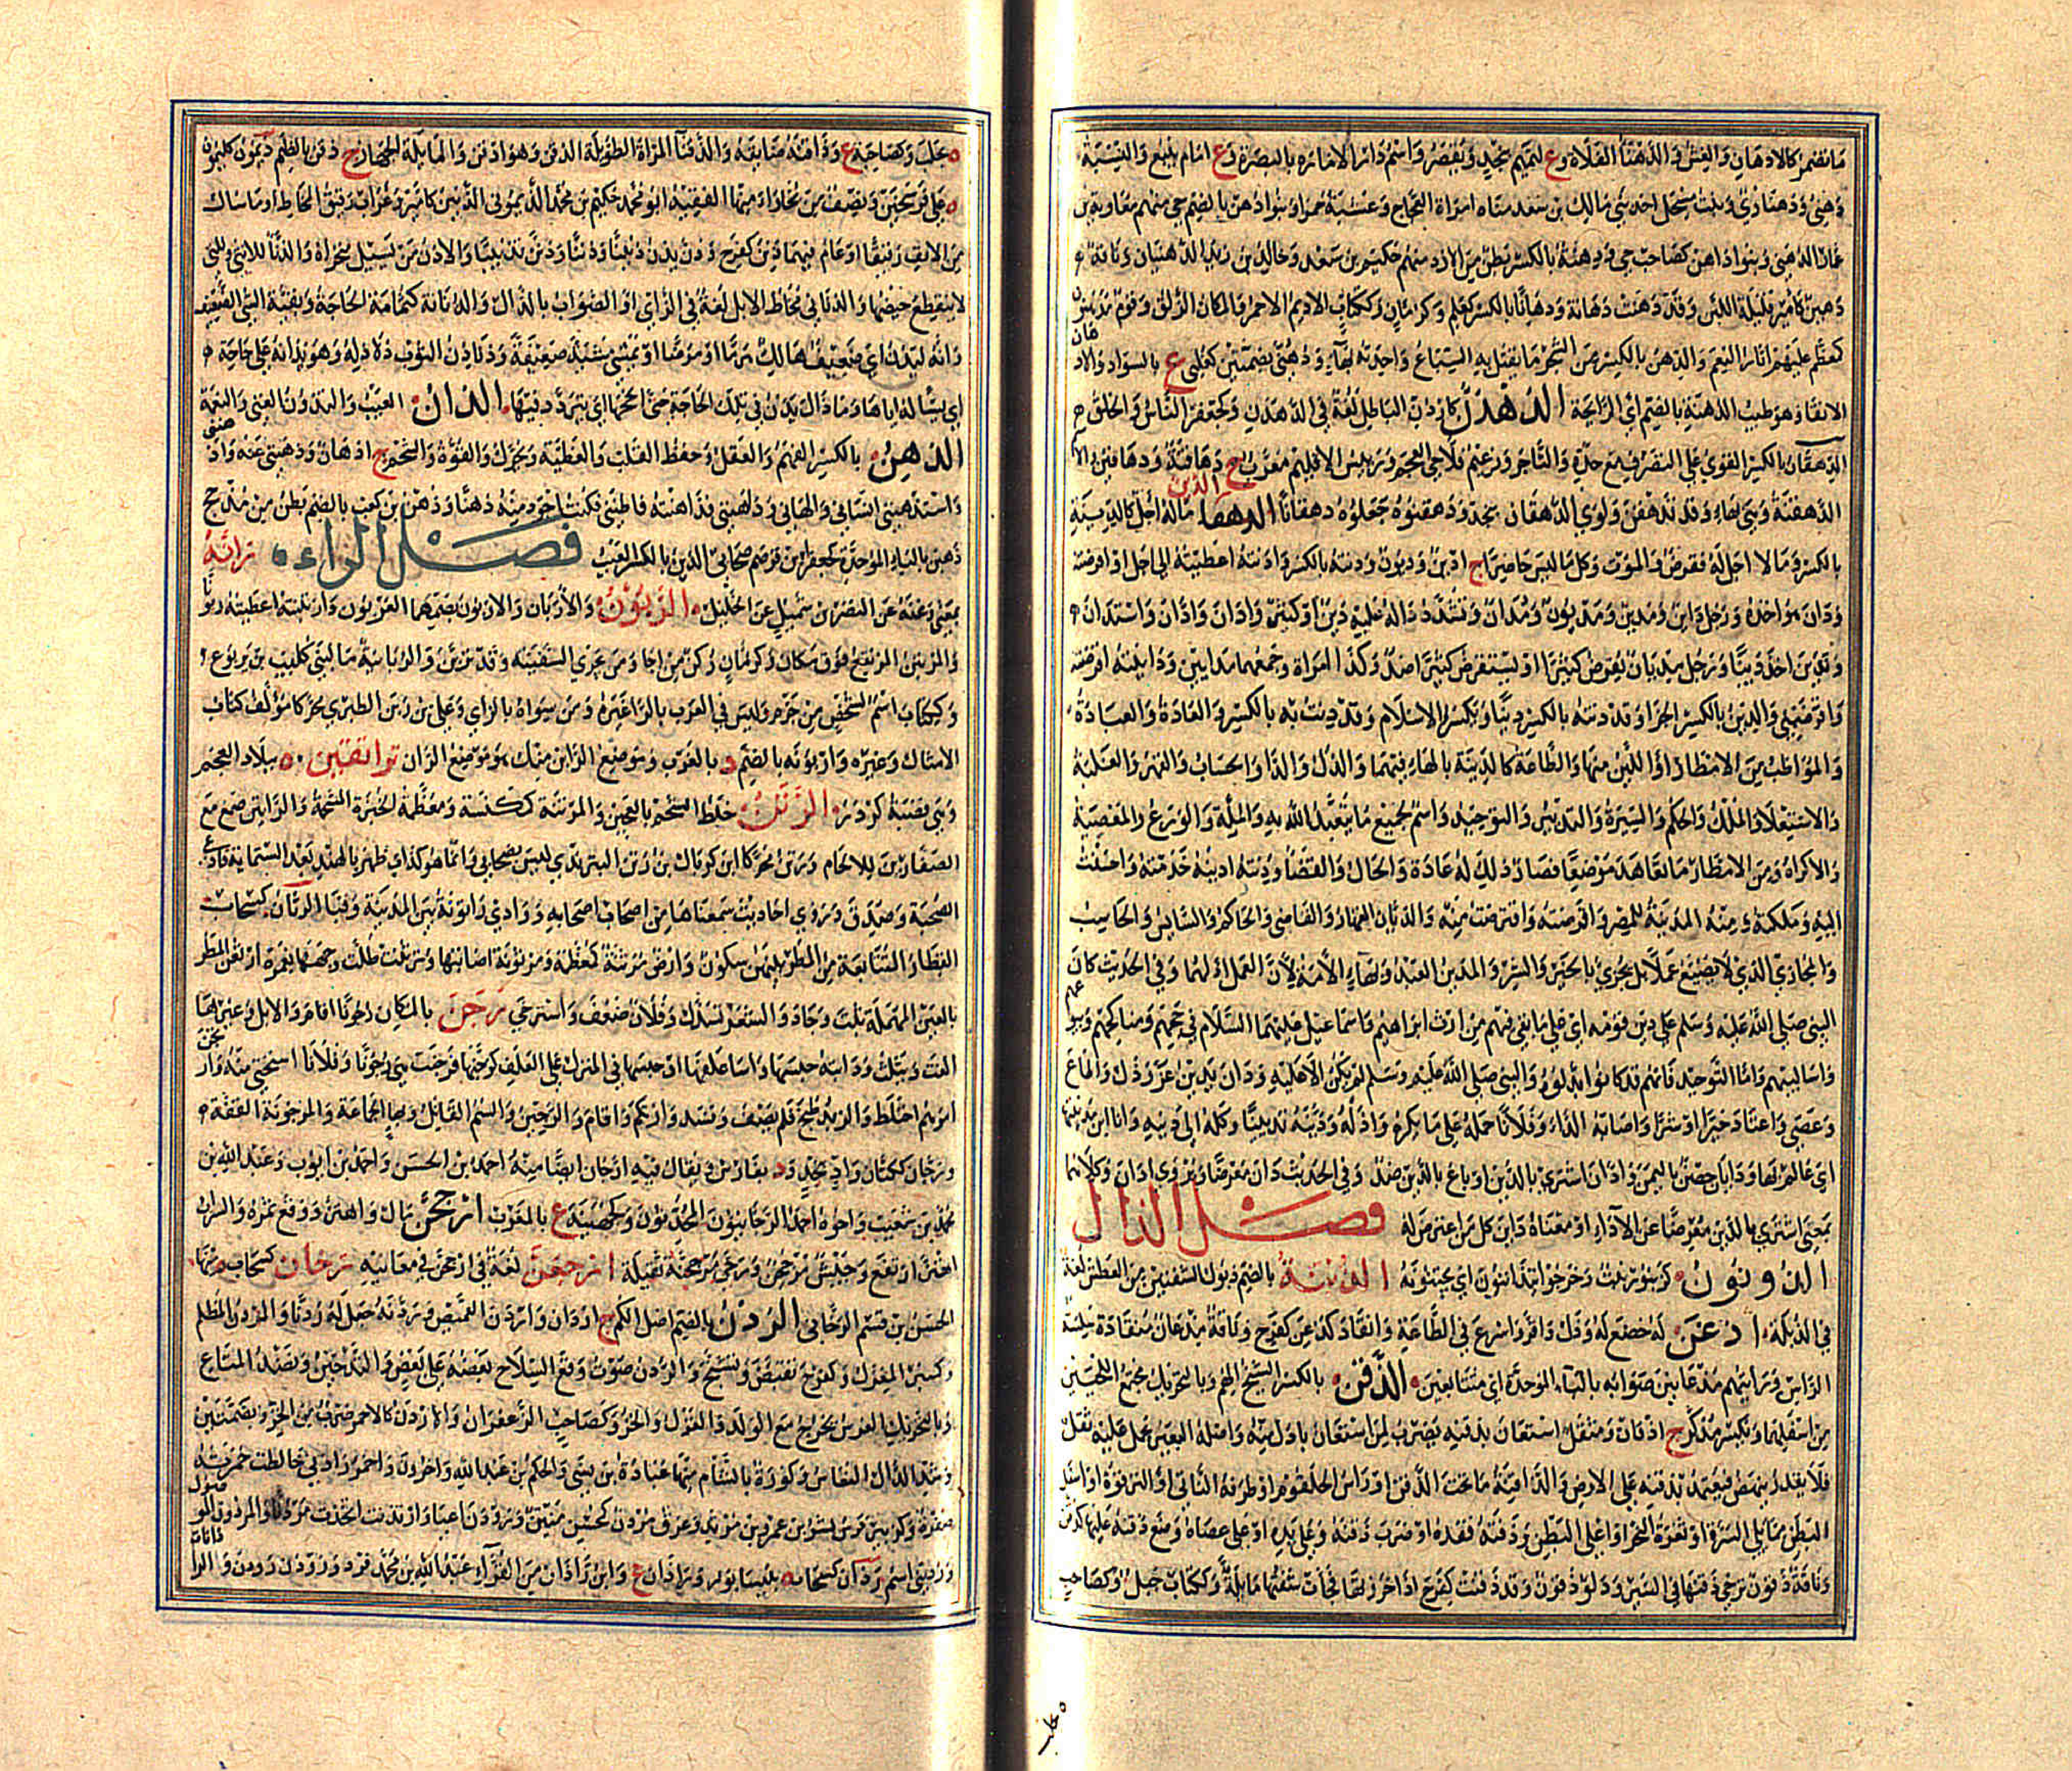 ما تضمر كالادهان والغش و الدهنا الفلاة وع لتميم بنجد ويقصر واسم دار الامارة بالبصرة وع امام ينبع والنسبة
دهني ودهناوي وبنت مسحل احد بني مالك بن سعد مناة امراة العجاج وعشبة حمرا وبنو دهن بالضم حي منهم معاوية بن
عمار الدهني وبنو داهن كصاحب حي ودهنة بالكسر بطن من الازد منهم حكيم بن سعد وخالد بن زيد الدهنيان وناقة
دهين كامير قليلة اللبن وقد دهنت دهانة ودهانا بالكسر كعلم وكرمان وككتاب الاديم الاحمر والمكان الزلق وقوم مدهنون
كمعظم عليهم اثار النعم والدهن بالكسر من الشجر ما يقتل به السباع واحدته بهاء ودهنى بضمتين كغلبى ع بالسواد والاد هان
الانقا وهو طيب الدهنة بالضم اي الرائحة الدهدن كاردن الباطل لغة في الدهدن وكجعفر الناس والخلق
الدهقان بالكسر القوي على التصرف مع حدة والتاجر وزعيم فلاحي العجم ورئيس الاقليم معرب ج دهاقنة ودهاقين
الدهقنة وهي بهاء وقد تدهقن ولوي الدهقان بنجد ودهقنوه جعلوه دهقانا الدين ماله اجل كالدينة
بالكسر وما لا اجل له فقرض والموت وكل ما ليس حاضرا ج ادين وديون ودنته بالكسر وادنته اعطيته الى اجل او اقرضته
ودان هو اخذه ورجل داين ومدين ومديون ومدان وتشدد داله عليه دين او كثير وادان وادان واستدان
وتدين اخذ دينا ورجل مديان يقرض كثيرا او يستقرض كثيرا ضد وكذا امراة وجمعهما مدايين وداينته اقرضته
واقرضني والدين بالكسر الجزا وقد دنته بالكسر دينا ويكسر والاسلام وقد دنت به بالكسر و العادة والعبادة
والمواظب من الامطار او اللين منها والطاعة كالدينة بالهاء فيهما والذل والدا والحساب والقهر والغلبة
والاستعلا والملك والحكم والسيرة والتدبير والتوحيد واسم لجميع ما يتعبد الله به والملة والورع والمعصية
والاكراه ومن الامطار ما تعاهد موضعا فصار ذلك له عادة والحال والقضا ودنته ادينه خدمته واحسنت
اليه وملكته ومنه المدينة للمصر واقرضته واقترضت منه والديان القهار والقاضي والحاكم والسايس والحاسب
والمجازي الذي لا يضيع عملا بل يجزي بالخير والشر والمدين العبد وبهاء الامة لان العمل اذلهما وفي الحديث كان
النبي صلى الله عليه وسلم على دين قومه اي على ما بقي فيهم من ارث ابراهيم واسماعيل عليهما السلام في حجهم ومناكحهم وبيوعهم
واساليبهم واما التوحيد فانهم قد كانوا بدلوه والنبي صلى الله عليه وسلم لم يكن الا عليه ودان يدين عز وذل واطاع
وعصى واعتاد خيرا او شرا واصابه الداء وفلانا حمله على ما يكره واذله ودينه تديينا وكله الى دينه وانا ابن مدينتها
اي عالم بها وديان حصن باليمن وادان اشترى بالدين او باع بالدين ضد وفي الحديث دان معرضا ويروى ادان وكلاهما
بمعنى اشترى بالدين معرضا عن الاداء او معناه داين كل من اعترض له فصل الذال
الذونون كزنبور نبت وخرجوا يتذاننون اي يجتنونه الذبنة بالضم ذبول الشفتين من العطش لغة
في الذبلة اذعن له خضع له وذل واقر واسرع في الطاعة وانقاد كذعن كفرح وناقة مذعان منقادة سلسة
الراس ورايتهم مذعانين صوابه بالباء الموحدة اي متتابعين الذقن بالكسر الشيخ الهم وبالتحريك مجتمع اللحيين
من اسفلهما ويكسر مذكر ج اذقان ومثقل استعان بذقنه يضرب لمن استعان باذل منه واصله البعير يحمل عليه ثقل
فلا يقدر ينهض فيعتمد بذقنه على الارض والذاقنة ما تحت الذقن او راس الحلقوم او طرفه الناتى او الترقوة او اسفل
البطن مما يلي السرة او ثغرة النحر او اعلى البطن وذقنه قفده او ضرب ذقنه وعلى يده او على عصاه وضع ذقنه عليها كذقن
وناقة ذقون ترخي ذقنها في السير ودلو ذقون وقد ذقنت كفرح اذا خرزتها فجات شفتها مائلة وككتاب جبل وكصاحب
ه حلب
ه حلب وكصاحبة ع وذاقنه ضايقه والذقنا المراة الطويلة الذقن وهو اذقن والمائلة الجهاز ج ذقن بالضم ذيمون كليمون
ه على فرسخين ونصف من بخاراء منها الفقيه ابو محمد حكيم بن محمد الذيموني الذنين كامير وغراب رقيق المخاط او ما سال
من الانف رقيقا او عام فيهما ذن كفرح وذن يذن ذنينا وذننا وذنن تذنينا والاذن من يسيل منخراه والذنا للانثى وللتي
لا ينقطع حيضها والذنانى مخاط الابل لغة في الزاي او الصواب بالذال والذنانة كثمامة الحاجة وبقية الشي الضعيف
وانه ليذن اي ضعيف هالك هرما او مرضا او يمشي مشية ضعيفة وذناذن الثوب ذلاذله وهو يذانه على حاجة
اي يساله اياها وما زال يذن في تلك الحاجة حتى انجحها اي يتردد فيها الذان العيب والتذون الغنى والنعمة
الذهن بالكسر الفهم والعقل وحفظ القلب والفطنة ويحرك والقوة والشحم ج اذهان وذهنني عنه واذهنني
واستذهنني انساني والهاني وذاهنني فذاهنته فاطنني فكنت اجود منه ذهنا وذهن بن كعب بالضم بطن من مذحج
ذهبن بالباء الموحدة كجعفر ابن قرضم صحابي الذين بالكسر العيب فصل الراء ه رانه
بمعنى رعنه عن النضر بن شميل عن الخليل الربون والاربان والاربون بضمهما العربون واربنته اعطيته ربونا
والمرتبن المرتفع فوق مكان وكرمان ركن من اجا ومن يجري السفينة وقد تربن و الربانية ما لبني كليب بن يربوع
وككتاب اسم لشخص من جرم وليس في العرب بالرا غيره ومن سواه بالزاي وعلي بن ربن الطبري محركا مؤلف كتاب
الامثال وغيره واربونة بالضم د بالغرب وموضع الران منك بموضع الران راتقين ه ببلاد العجم
وهي قصبة كردر الرتن خلط الشحم بالعجين والمرتنة كمكنسة ومعظمة الخبزة المشحمة والراتين صمغ مع
الصفارين للالحام ورتن محركا ابن كربال بن رتن البترندي ليس بصحابي وانما هو كذاب ظهر بالهند بعد الستماية فادعى
الصحبة وصدق وروى احاديث سمعناها من اصحاب اصحابه ووادي راتونة بين المدينة وقبا الرثان كسحاب
القطار المتتابعة من المطر بينهن سكون وارض مرثنة كمعظمة ومرثونة اصابتها وترثنت طلت وجهها بغمرة ارثعن المطر
بالعين المهملة ثبت وجاد والشعر تسدل وفلان ضعف واسترخى رجن بالمكان رجونا اقام والابل وغيرها
الفت ويثلث ودابته حبسها واسا علفها او حبسها في المنزل على العلف كرجنها فرجنت هي رجونا وفلانا استحيى منه وارتجن
امرهم اختلط والزبد طبخ فلم يصف وفسد وارتكم واقام والرجين والسم القاتل وبهاء الجماعة والمرجونة القفة
ورجان ككتان واد بنجد ود بفارس ويقال فيه ارجان ايضا منه احمد بن الحسن واحمد بن ايوب وعبد الله بن
محمد بن شعيب واخوه احمد الرجانيون المحدثون وكجهينة ع بالمغرب ارجحن مال واهتز ووقع بمرة والسراب
ارتفع وجيش مرجحن ورحى مرجحنة ثقيلة ارجعن لغة في ارجحن في معانيه رخان كسحاب ه منها
الحسن بن قسم الرخاني الردن بالضم اصل الكم ج اردان واردن القميص وردنه جعل له ردنا والمردن المظلم
وكمنبر المغزل وكفرح تقبض وتشنج والردن صوت وقع السلاح بعضه على بعض والتدخين ونضد المتاع
وبالتحريك الغرس يخرج مع الولد والغزل والخز وكصاحب الزعفران والاردن كالاحمر ضرب من الخز وبضمتين
وشد الدال النعاس وكورة بالشام منها عبادة بن نسي والحكم بن عبد الله واخرون واحمر رادني خالطت حمرته
صفرة وكزبير فرس لبشر بن عمرو بن مرثد وعرق مردن كمحسن منتن وردون اعيا وارتدنت اتخذت مردنا والمردون الموصول
ورديني اسم رذان كسحاب ه بنيسابور وراذان ع وابن راذان من القراء عبدالله بن محمد فرد وروذن رودن والراذانات